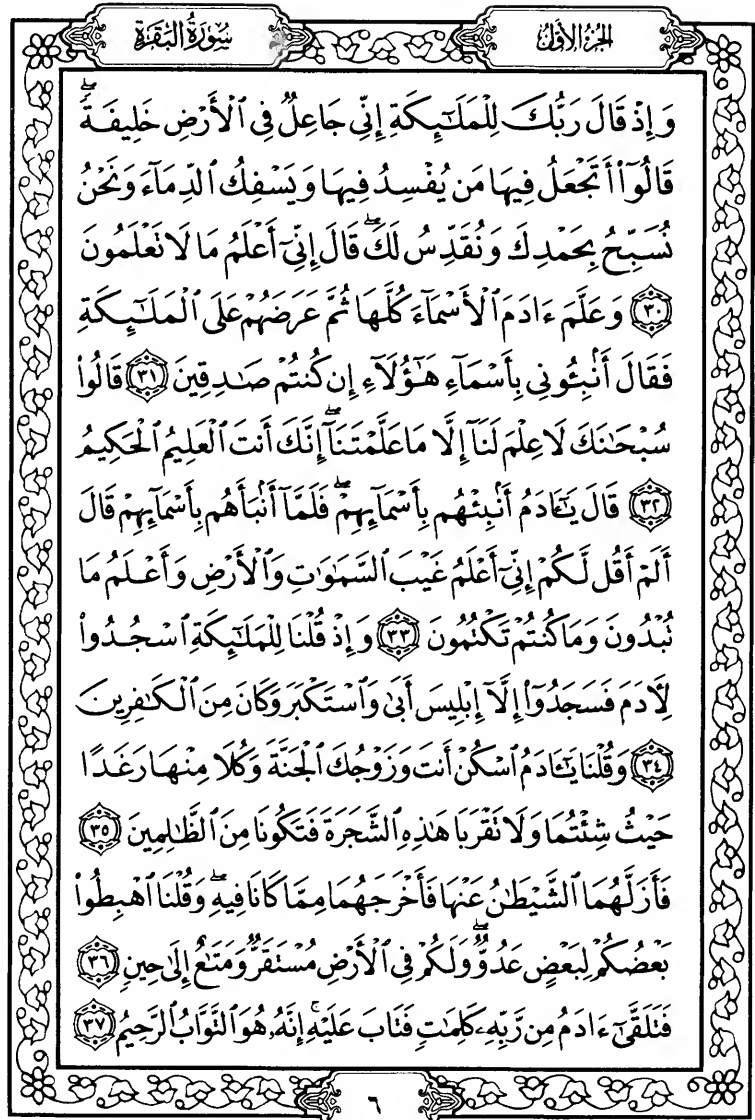 سُورَةُ البَقَرَةِ
الجُزءُ الأوَّلُ
وَإِذْ قَالَ رَبُّكَ لِلْمَلَٰٓئِكَةِ إِنِّى جَاعِلٌ فِى ٱلْأَرْضِ خَلِيفَةً ۖ
قَالُوٓا۟ أَتَجْعَلُ فِيهَا مَن يُفْسِدُ فِيهَا وَيَسْفِكُ ٱلدِّمَآءَ وَنَحْنُ
نُسَبِّحُ بِحَمْدِكَ وَنُقَدِّسُ لَكَ ۖ قَالَ إِنِّىٓ أَعْلَمُ مَا لَا تَعْلَمُونَ
﴿٣٠﴾ وَعَلَّمَ ءَادَمَ ٱلْأَسْمَآءَ كُلَّهَا ثُمَّ عَرَضَهُمْ عَلَى ٱلْمَلَٰٓئِكَةِ
فَقَالَ أَنۢبِـُٔونِى بِأَسْمَآءِ هَٰٓؤُلَآءِ إِن كُنتُمْ صَٰدِقِينَ ﴿٣١﴾ قَالُوا۟
سُبْحَٰنَكَ لَا عِلْمَ لَنَآ إِلَّا مَا عَلَّمْتَنَآ ۖ إِنَّكَ أَنتَ ٱلْعَلِيمُ ٱلْحَكِيمُ
﴿٣٢﴾ قَالَ يَٰٓـَٔادَمُ أَنۢبِئْهُم بِأَسْمَآئِهِمْ ۖ فَلَمَّآ أَنۢبَأَهُم بِأَسْمَآئِهِمْ قَالَ
أَلَمْ أَقُل لَّكُمْ إِنِّىٓ أَعْلَمُ غَيْبَ ٱلسَّمَٰوَٰتِ وَٱلْأَرْضِ وَأَعْلَمُ مَا
تُبْدُونَ وَمَا كُنتُمْ تَكْتُمُونَ ﴿٣٣﴾ وَإِذْ قُلْنَا لِلْمَلَٰٓئِكَةِ ٱسْجُدُوا۟
لِـَٔادَمَ فَسَجَدُوٓا۟ إِلَّآ إِبْلِيسَ أَبَىٰ وَٱسْتَكْبَرَ وَكَانَ مِنَ ٱلْكَٰفِرِينَ
﴿٣٤﴾ وَقُلْنَا يَٰٓـَٔادَمُ ٱسْكُنْ أَنتَ وَزَوْجُكَ ٱلْجَنَّةَ وَكُلَا مِنْهَا رَغَدًا
حَيْثُ شِئْتُمَا وَلَا تَقْرَبَا هَٰذِهِ ٱلشَّجَرَةَ فَتَكُونَا مِنَ ٱلظَّٰلِمِينَ ﴿٣٥﴾
فَأَزَلَّهُمَا ٱلشَّيْطَٰنُ عَنْهَا فَأَخْرَجَهُمَا مِمَّا كَانَا فِيهِ ۖ وَقُلْنَا ٱهْبِطُوا۟
بَعْضُكُمْ لِبَعْضٍ عَدُوٌّ ۖ وَلَكُمْ فِى ٱلْأَرْضِ مُسْتَقَرٌّ وَمَتَٰعٌ إِلَىٰ حِينٍ ﴿٣٦﴾
فَتَلَقَّىٰٓ ءَادَمُ مِن رَّبِّهِۦ كَلِمَٰتٍ فَتَابَ عَلَيْهِ ۚ إِنَّهُۥ هُوَ ٱلتَّوَّابُ ٱلرَّحِيمُ ﴿٣٧﴾
٦